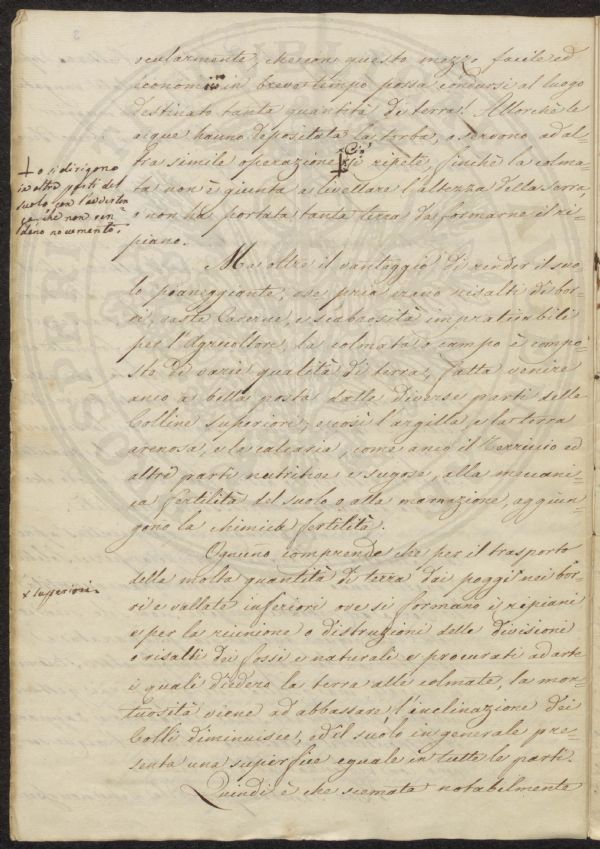 ocularmente, che con questo mezzo facile ed
economico in breve tempo possa condursi al luogo
destinato tanta quantità di terra! Allorchè le
acque hanno depositata la torba, o servono ad al-
tra simile operazione, ✝ ×Ciò si ripete, finchè la colma-
ta non è giunta a livellare l'altezza della Serra,
o non ha portata tanta terra da formarne il ri-
piano.
✝ o si dirigono
in altre parti del
suolo con l'avverten-
za che non ren-
dano nocumento.
Ma oltre il vantaggio di render il suo-
lo pianeggiante, ove pria erano risalti di bor-
ri, vaste Caverne, e scabrosità impraticabili
per l'Agricoltore, la colmata o campo è compo-
sto di varie qualità di terra, fatta venire
anco a bella posta dalle diverse parti delle
Colline superiori; e così l'argilla e la terra
arenosa, e la calcaria, come anco il Terriccio ed
altre parti nutritive e sugose, alla meccani-
ca fertilità del suolo o alla marnazione, aggiun-
gono la chimica fertilità.
Ognuno comprende che per il trasporto
della molta quantità di terra dai poggi nei bor-
× superiori
ri e vallate inferiori ove si formano i ripiani
e per la riunione o distruzioni delle divisioni
o risalti di fossi e naturali e procurati ad arte
i quali diedero la terra alle colmate, la mon-
tuosità viene ad abbassare, l'inclinazione dei
Colli diminuisce, ed il suolo in generale pre-
senta una superfice eguale in tutte le parti.
Quindi è che scemata notabilmente